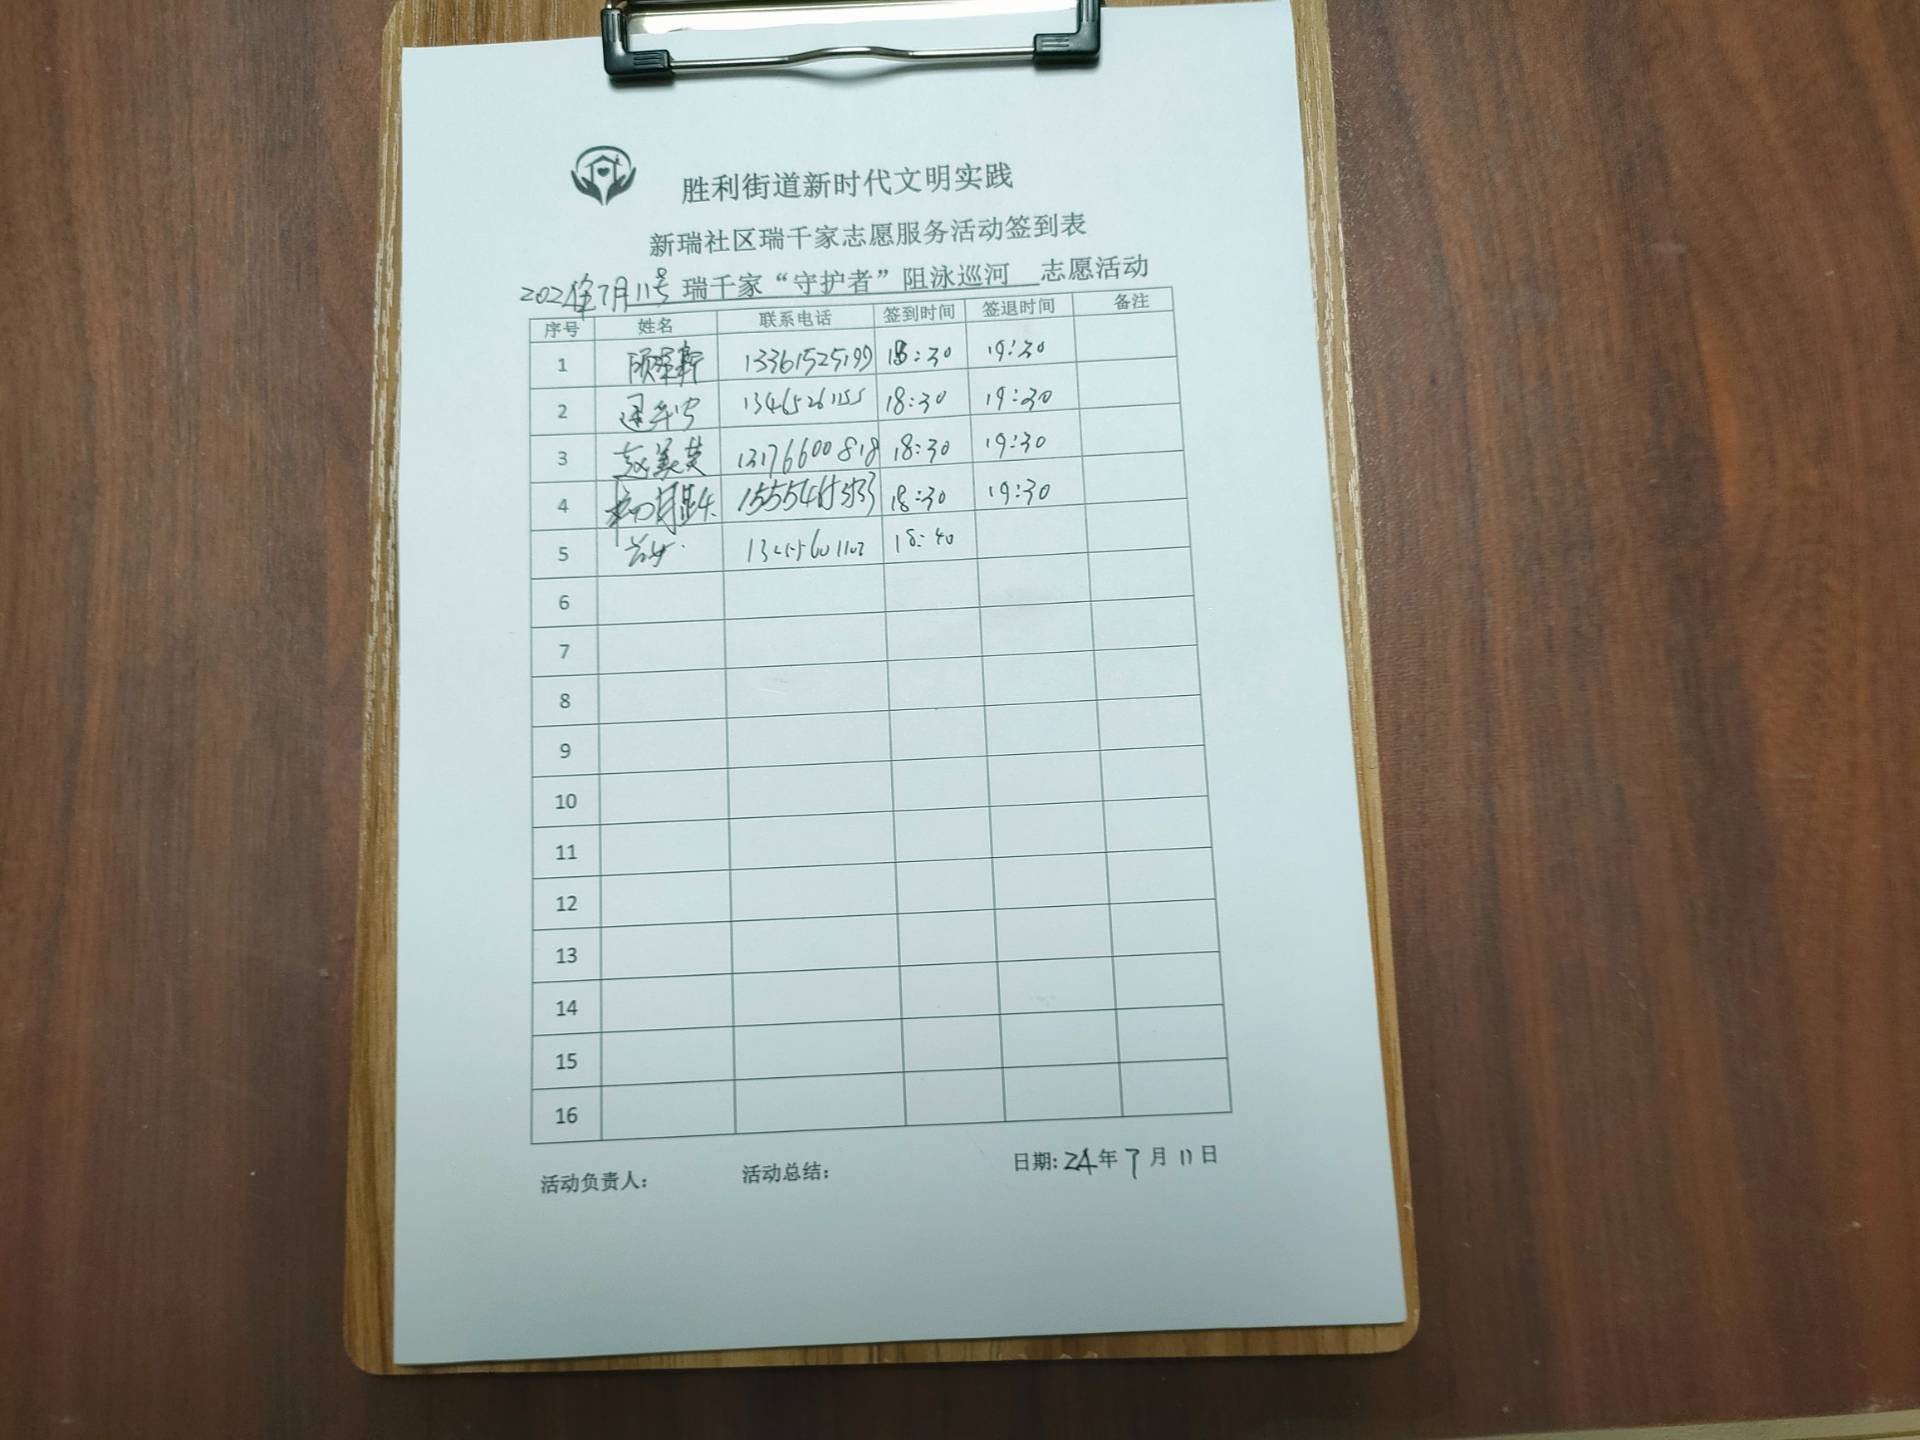 胜利街道新时代文明实践
新瑞社区瑞千家志愿服务活动签到表
2024年7月11号 瑞千家“守护者”阻泳巡河 志愿活动
序号 姓名 联系电话 签到时间 签退时间 备注
1 13361525199 18:30 19:30
2 13465261155 18:30 19:30
3 赵美英 13176600818 18:30 19:30
4 18:30 19:30
5 18:40
6
7
8
9
10
11
12
13
14
15
16
活动负责人: 活动总结: 日期: 24年7月11日